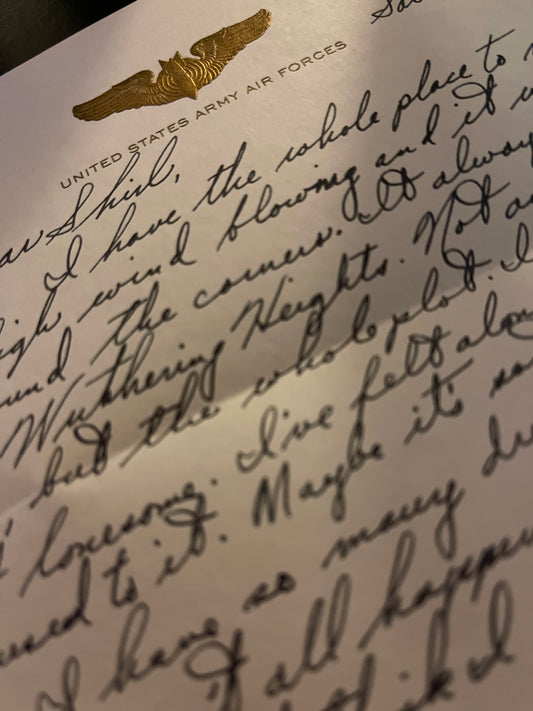 UNITED STATES ARMY AIR FORCES
Shirl,
I have the whole place to
wind blowing and it
the corners. It
Wuthering Heights. Not
but the whole plot.
lonesome. I've felt
to it. Maybe it's
I have so many
all
I